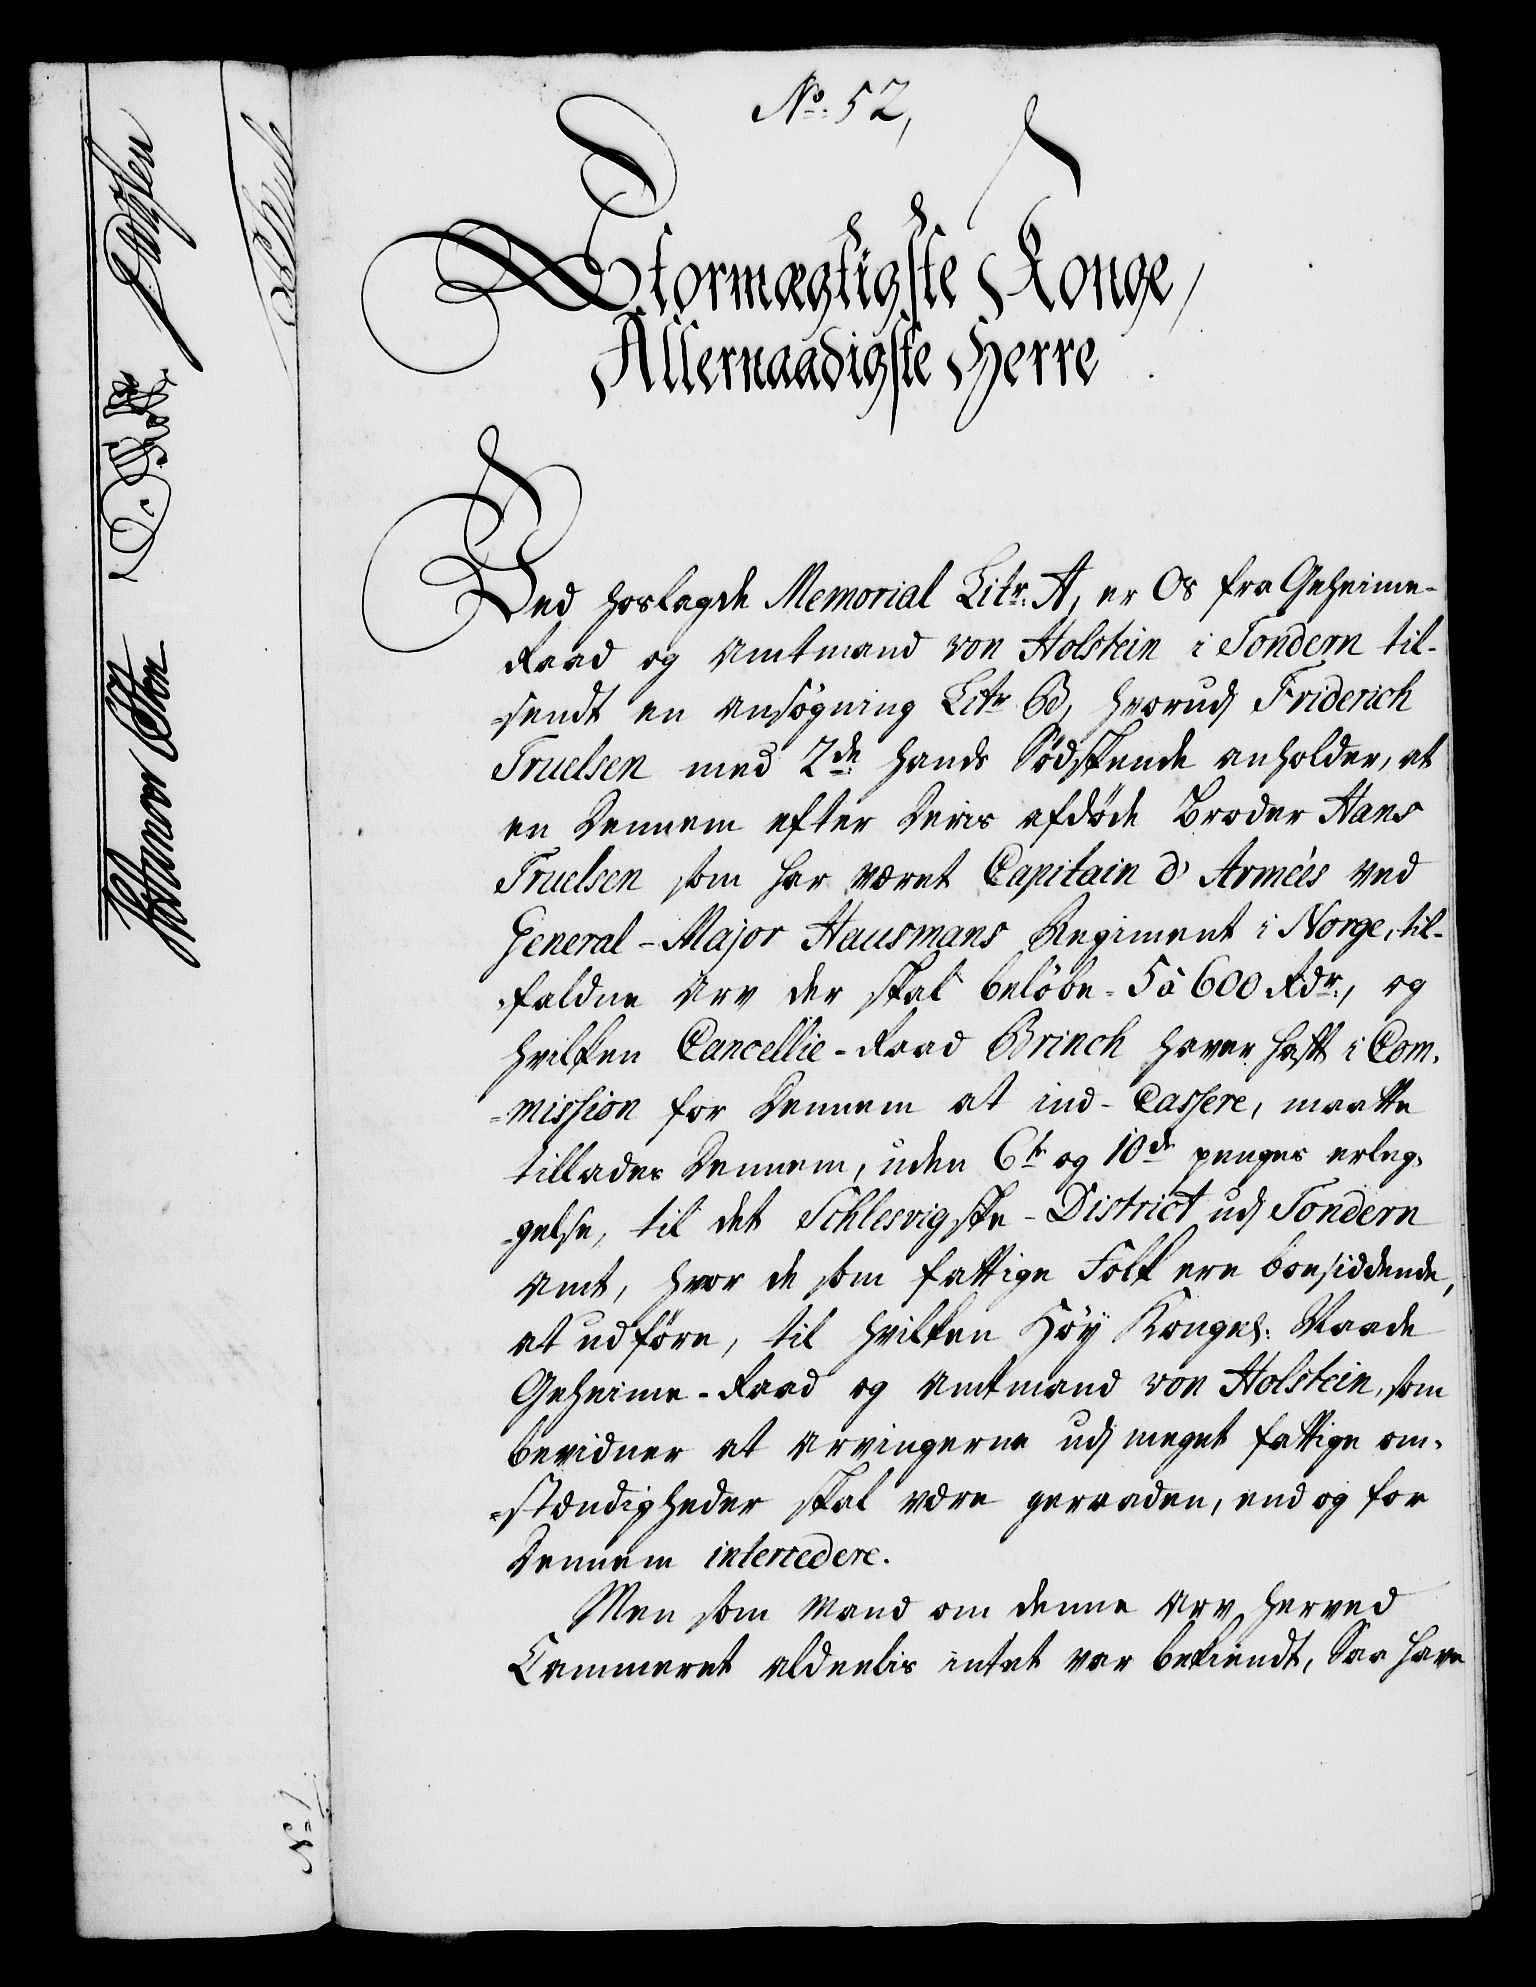 No: 52,
Stormægtigste Konge,
Allernaadigste Herre
Ved hoslagde Memorial Litr: A, er Os fra Geheime-
Raad og Amtmand von Holstein i Tondern til-
-sendt en Ansögning Litr B, hvorudj Friderich
Truelsen med 2de hands Södskende anholder, at
en Dennem efter Deris afdöde Broder Hans
Truelsen som har været Capitain d'Armées ved
General-Major Hausmans Regiment i Norge, til-
-faldne Arv der skal belöbe 5 à 600 Rdr:, og
hvilken Cancellie-Raad Brinch haver hafft i Com-
-mission for Dennem at ind-Cassere, maatte
tillades Dennem, uden 6te og 10de penges erleg-
-gelse, til det Schlesvigske-District udj Tondern
Amt, hvor de som fattige Folk ere boesiddende,
at udföre, til hvilken Höy Kongel: Naade
Geheime-Raad og Amtmand von Holstein, som
bevidner at Arvingerne udj meget fattige om-
-stændigheder skal være geraaden, end og for
Dennem intercedere.
Men som Mand om denne Arv herved
Cammeret aldeelis intet var bekiendt, Saa have
No 1